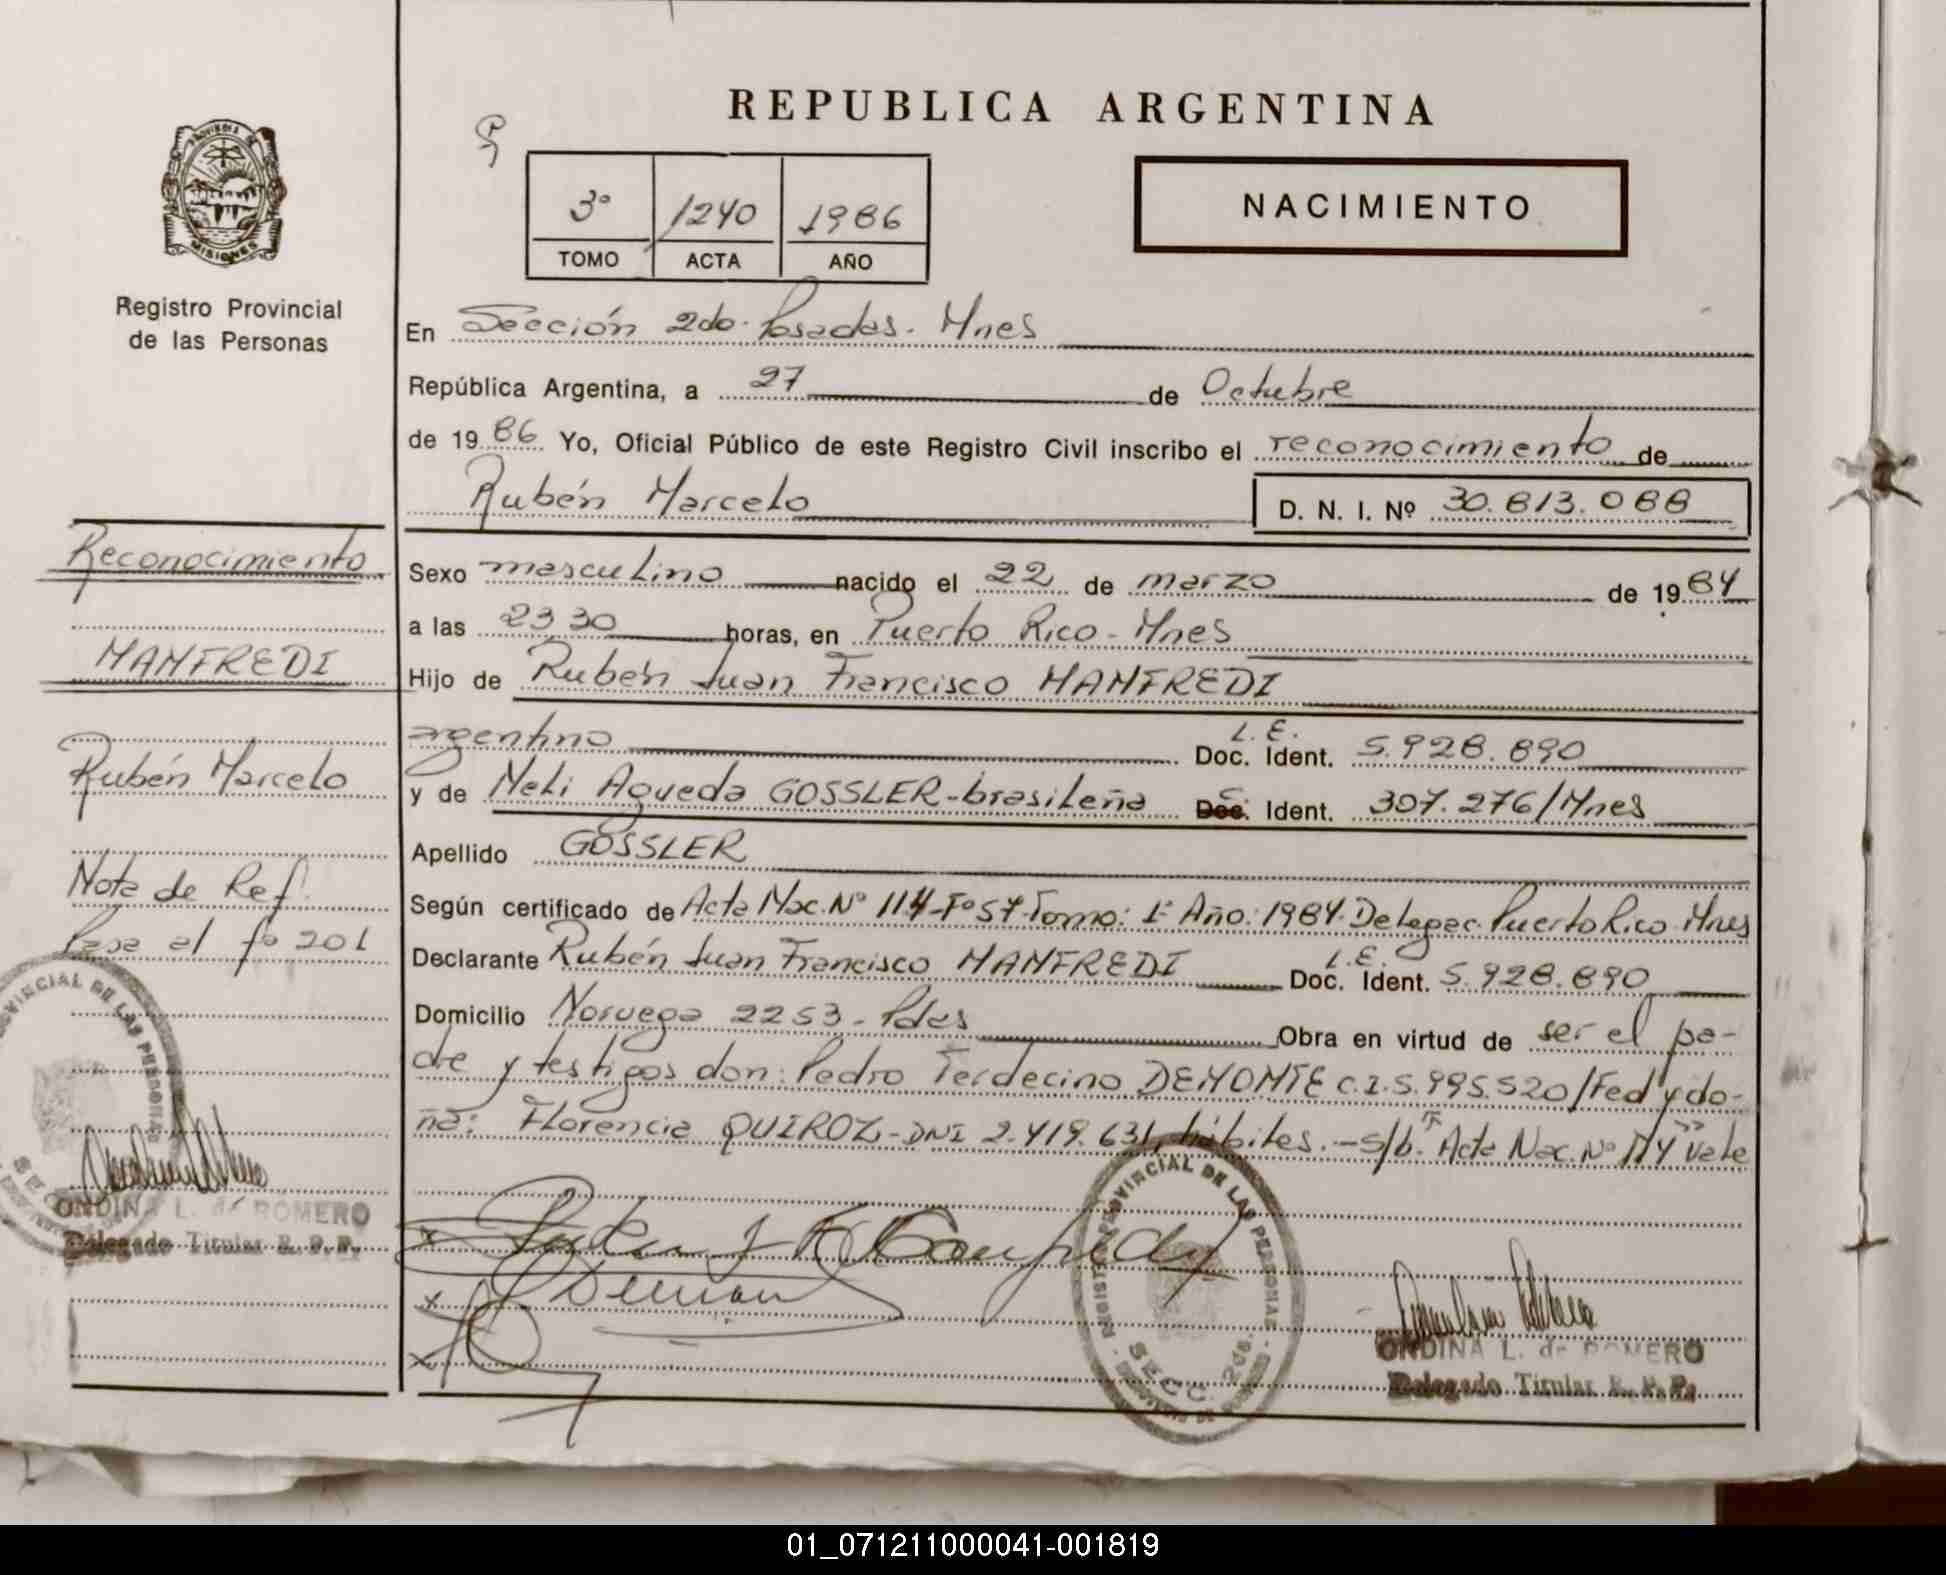 REPUBLICA ARGENTINA
3º 1240 1986
TOMO ACTA AÑO
NACIMIENTO
PROVINCIA DE
MISIONES
Registro Provincial
de las Personas
En Sección 2do. Posadas. Mnes
República Argentina, a 27 de Octubre
de 1986 Yo, Oficial Público de este Registro Civil inscribo el reconocimiento de
Rubén Marcelo D. N. I. Nº 30.813.088
Sexo masculino nacido el 22 de marzo de 1984
a las 23 30 horas, en Puerto Rico - Mnes
Hijo de Rubén Juan Francisco MANFREDI
argentino L.E. Doc. Ident. 5.928.890
y de Neli Agueda GOSSLER - brasileña Doc. Ident. 307.276/Mnes
Apellido GOSSLER
Según certificado de Acta Nac. Nº 114 - Fº 57. Tomo: 1º Año: 1984. Delegac. Puerto Rico Mnes
Declarante Rubén Juan Francisco MANFREDI L.E. Doc. Ident. 5.928.890
Domicilio Noruega 2253 - Pdas Obra en virtud de ser el pa-
dre y testigos don: Pedro Terdecino DEMONTE C.I. 5.995.520/Fed y do-
ña: Florencia QUIROZ - DNI 2.419.631, hábiles. - s/b. Acta Nac. Nº 114 vale
Reconocimiento
MANFREDI
Rubén Marcelo
Nota de Ref.
Pasa al fº 201
ONDINA L. de ROMERO
Delegado Titular R. P. P.
REGISTRO PROVINCIAL DE LAS PERSONAS
SECC. 2da.
ONDINA L. de ROMERO
Delegado Titular R. P. P.
01_071211000041-001819